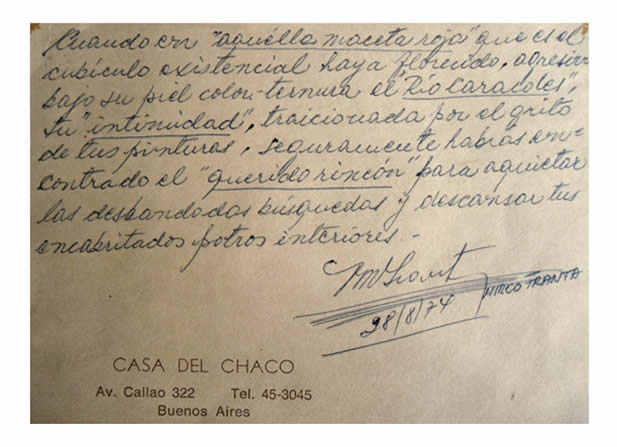 Cuando en "aquélla maceta roja" que es el
cubículo existencial haya florecido, agresivo
bajo su piel color-ternura el "Río Caracoles",
su "intimidad", traicionada por el grito
de tus pinturas, seguramente habrás en-
contrado el "querido rincón" para aquietar
las desbandadas búsquedas y descansar tus
encabritados potros interiores.-
28/8/74
MIRCO TRANTA
CASA DEL CHACO
Av. Callao 322 Tel. 45-3045
Buenos Aires